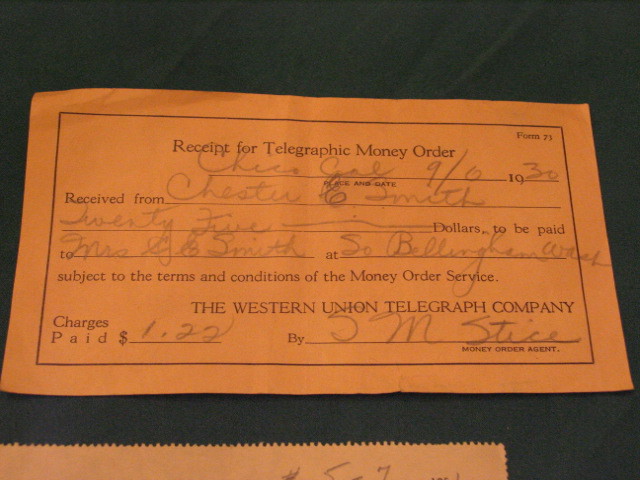 Form 73
Receipt for Telegraphic Money Order
Chico Cal 9/6 1930
PLACE AND DATE
Received from Chester E. Smith
Twenty Five Dollars, to be paid
to Mrs G E Smith at So Bellingham Wash
subject to the terms and conditions of the Money Order Service.
THE WESTERN UNION TELEGRAPH COMPANY
Charges
Paid $ 1.22 By S M Stice
MONEY ORDER AGENT.